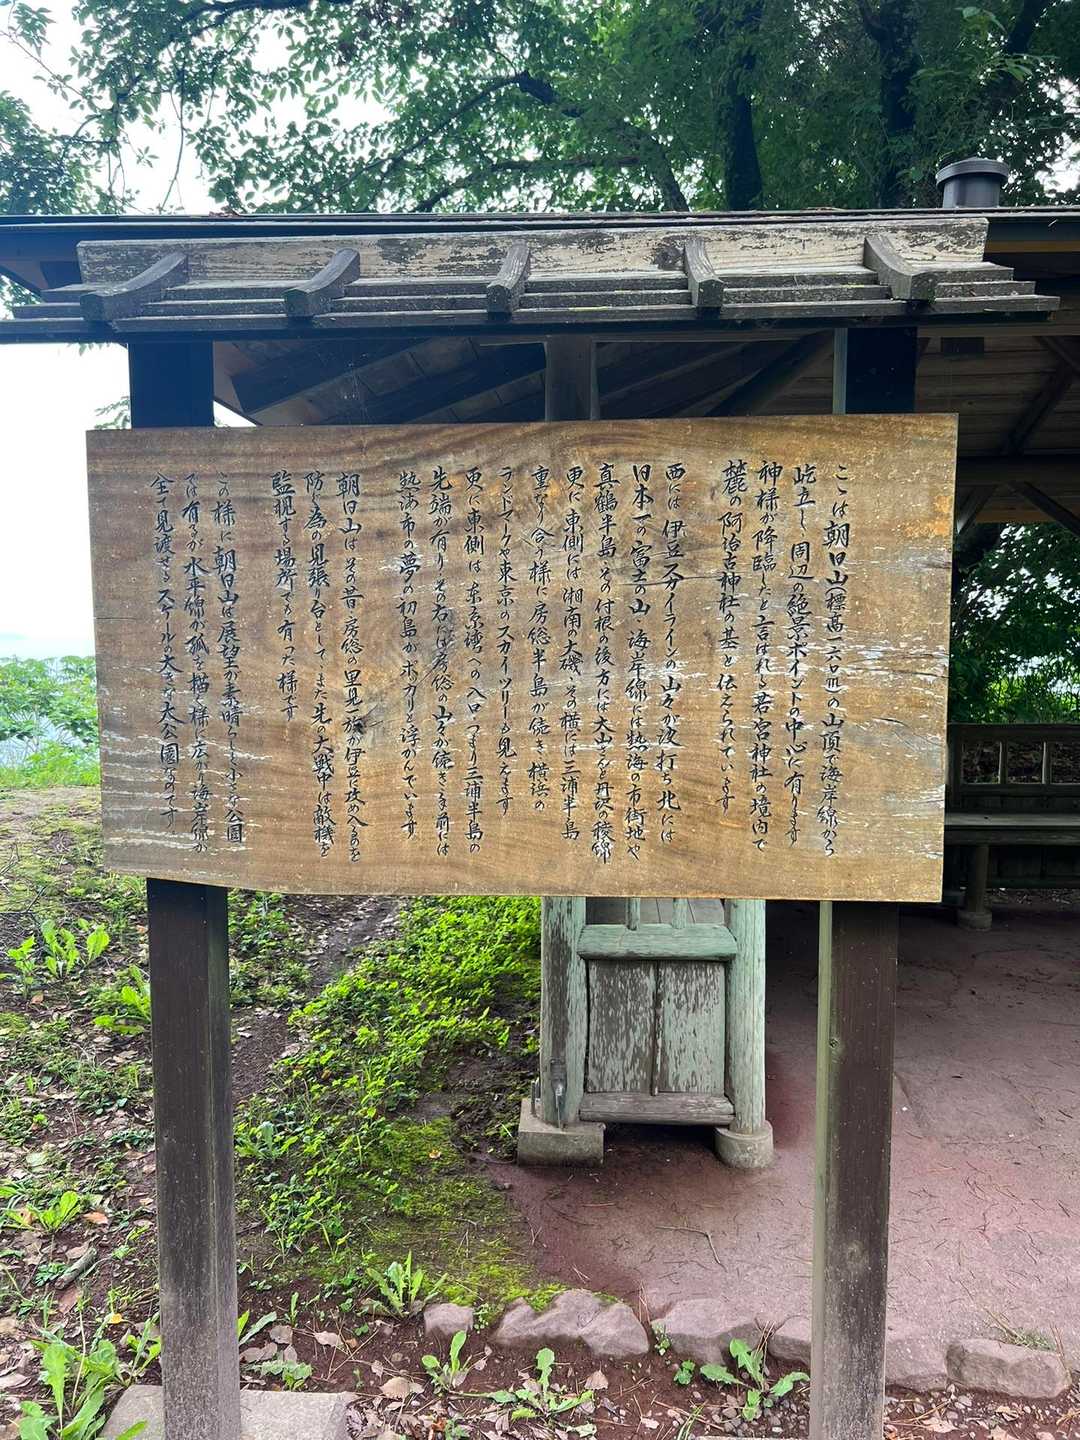 こゝは朝日山(標高一六〇m)の山頂で海岸線から
屹立し、周辺の絶景ポイントの中心に有ります
神様が降臨したと言はれる若宮神社の境内で
麓の阿治古神社の基と伝えられています
西には伊豆スカイラインの山々が波打ち北には
日本一の富士の山、海岸線には熱海の市街地や
真鶴半島、その付根の後方には大山さんと丹沢の稜線
更に東側には湘南の大磯、その横には三浦半島
重なり合う様に房総半島が続き、横浜の
ランドマークや東京のスカイツリーも見えます
更に東側は、東京湾への入口、つまり三浦半島の
先端が有り、その右には房総の山々が続き手前には
熱海市の夢の初島がポカリと浮かんでいます
朝日山はその昔、房総の里見一族が伊豆に攻め入るのを
防ぐ為の見張り台として、また先の大戦中は敵機を
監視する場所でも有った様です
この様に朝日山は展望が素晴らしく小さな公園
では有るが水平線が弧を描く様に広がり海岸線が
全て見渡せるスケールの大きな大公園なのです。